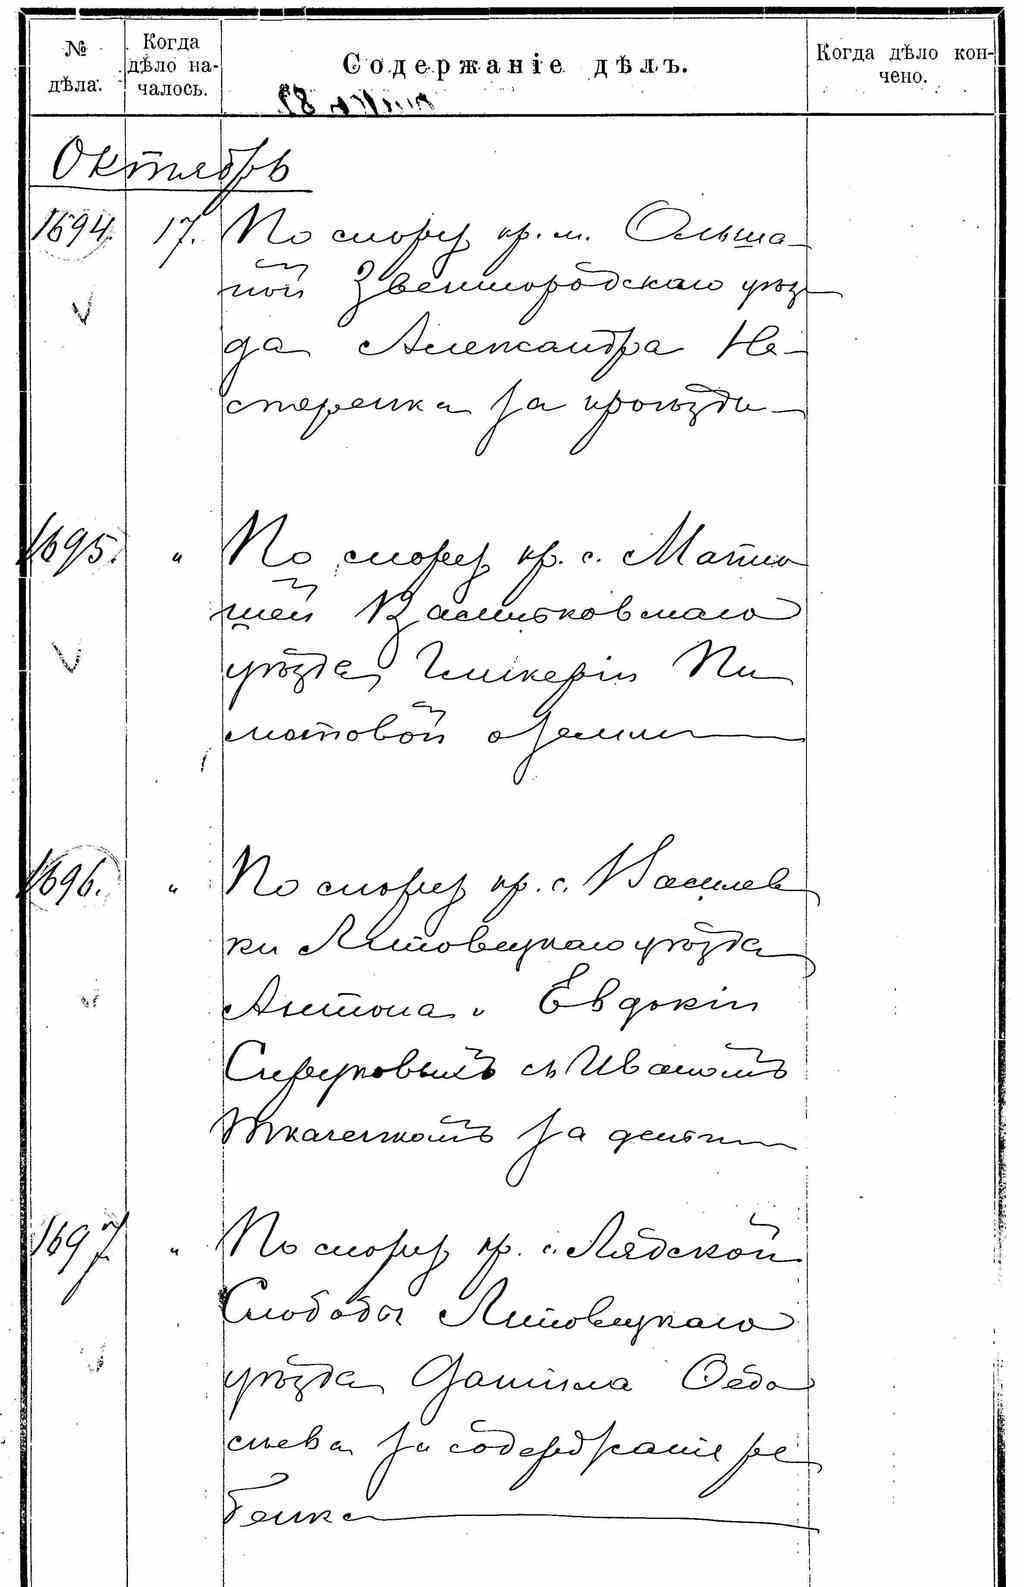 № дѣла.
Когда дѣло на-
чалось.
Содержаніе дѣлъ.
Когда дѣло кон-
чено.
Октябрь
1694. 17. По спору кр. м. Ольша-
ной Звенигородскаго уѣз-
да Александра Не-
стеренка за проѣзды
1695. " По спору кр. с.
Васильковскаго
уѣзда Гликеріи
о земли
1696. " По спору кр. с. Василев
ки Липовецкаго уѣзда
Антона и Евдокіи
съ Иваномъ
Ткаченкомъ за деньги
1697 " По спору кр. с. Лядской
Слободы Липовецкаго
уѣзда Даніила Ѳедо
сіева за содержаніе ре
бенка